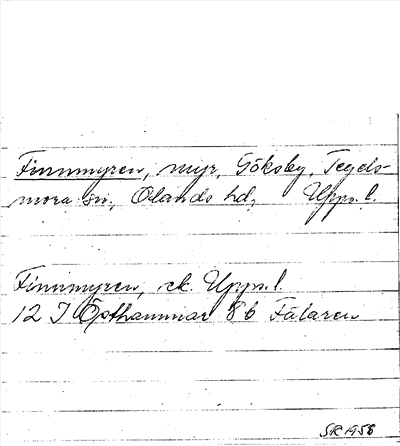 Finnmyren, myr, Göksby, Tegels-
mora sn, Olands hd, Upps. l.
Finnmyren, ek. Upps. l.
12 I Östhammar 8b Fälaren
SR 1958